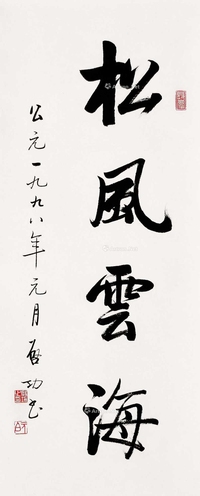 松風雲海
公元一九九八年元月启功书